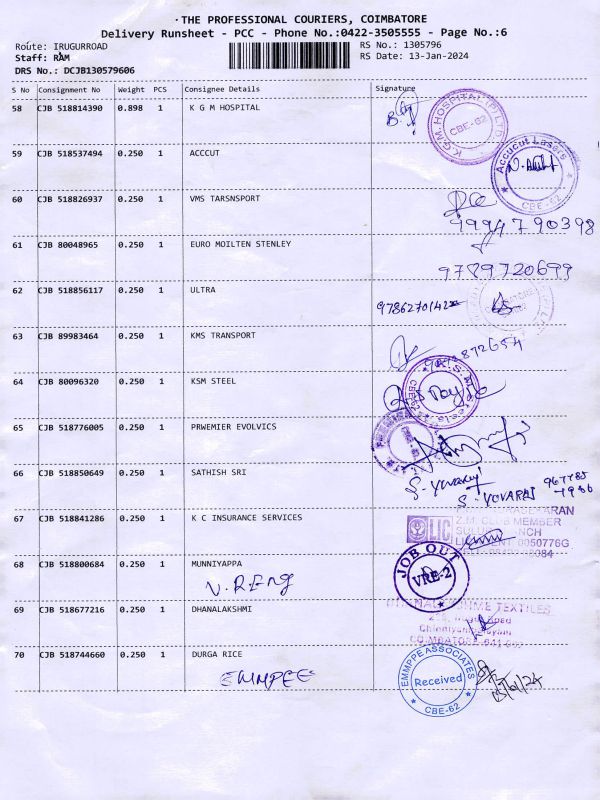 ·THE PROFESSIONAL COURIERS, COIMBATORE
Delivery Runsheet - PCC - Phone No.:0422-3505555 - Page No.:6
Route: IRUGURROAD
RS No.: 1305796
Staff: RAM
RS Date: 13-Jan-2024
DRS No.: DCJB130579606
S No Consignment No Weight PCS Consignee Details Signature
58 CJB 518814390 0.898 1 K G M HOSPITAL
K.G.M. HOSPITAL (P) LTD. CBE-62
59 CJB 518537494 0.250 1 ACCCUT
Accucut Lasers CBE-62
60 CJB 518826937 0.250 1 VMS TARSNSPORT
9994790398
61 CJB 80048965 0.250 1 EURO MOILTEN STENLEY
9789720699
62 CJB 518856117 0.250 1 ULTRA
63 CJB 89983464 0.250 1 KMS TRANSPORT
64 CJB 80096320 0.250 1 KSM STEEL
65 CJB 518776005 0.250 1 PRWEMIER EVOLVICS
66 CJB 518850649 0.250 1 SATHISH SRI
S. YUVARAJ
67 CJB 518841286 0.250 1 K C INSURANCE SERVICES
LIC Z.M. CLUB MEMBER
68 CJB 518800684 0.250 1 MUNNIYAPPA
JOB OUT VRE-2
69 CJB 518677216 0.250 1 DHANALAKSHMI
TEXTILES
COIMBATORE-641
70 CJB 518744660 0.250 1 DURGA RICE
EMMPEE
EMMPPE ASSOCIATES Received CBE-62